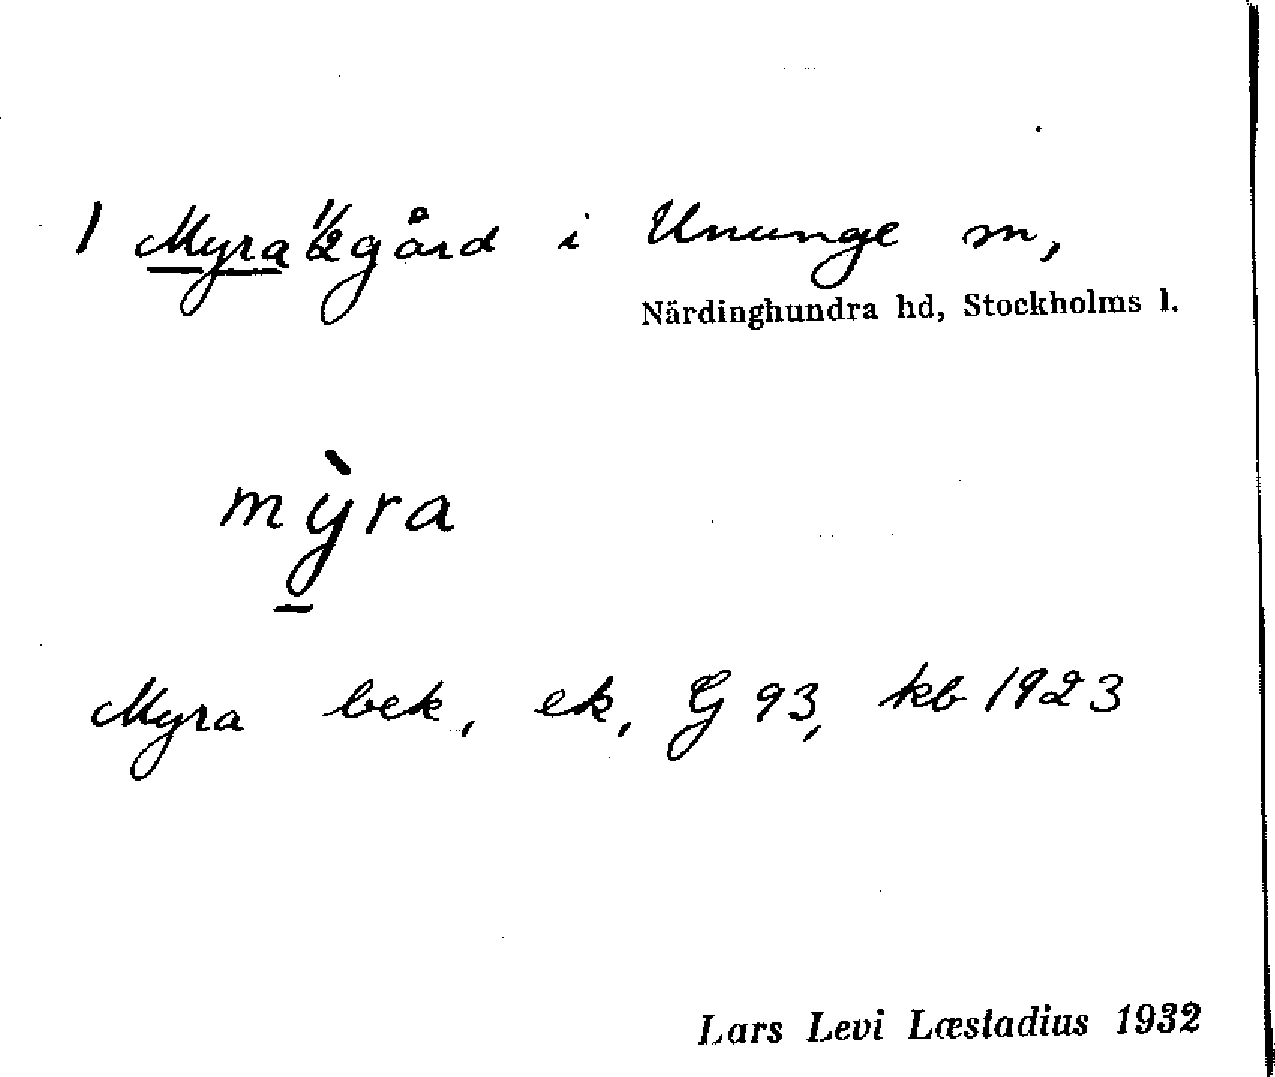 1 Myra ½ gård i Ununge sn,
Närdinghundra hd, Stockholms l.
mỳ̱ra
Myra bek, ek, G 93, kb 1923
Lars Levi Læstadius 1932